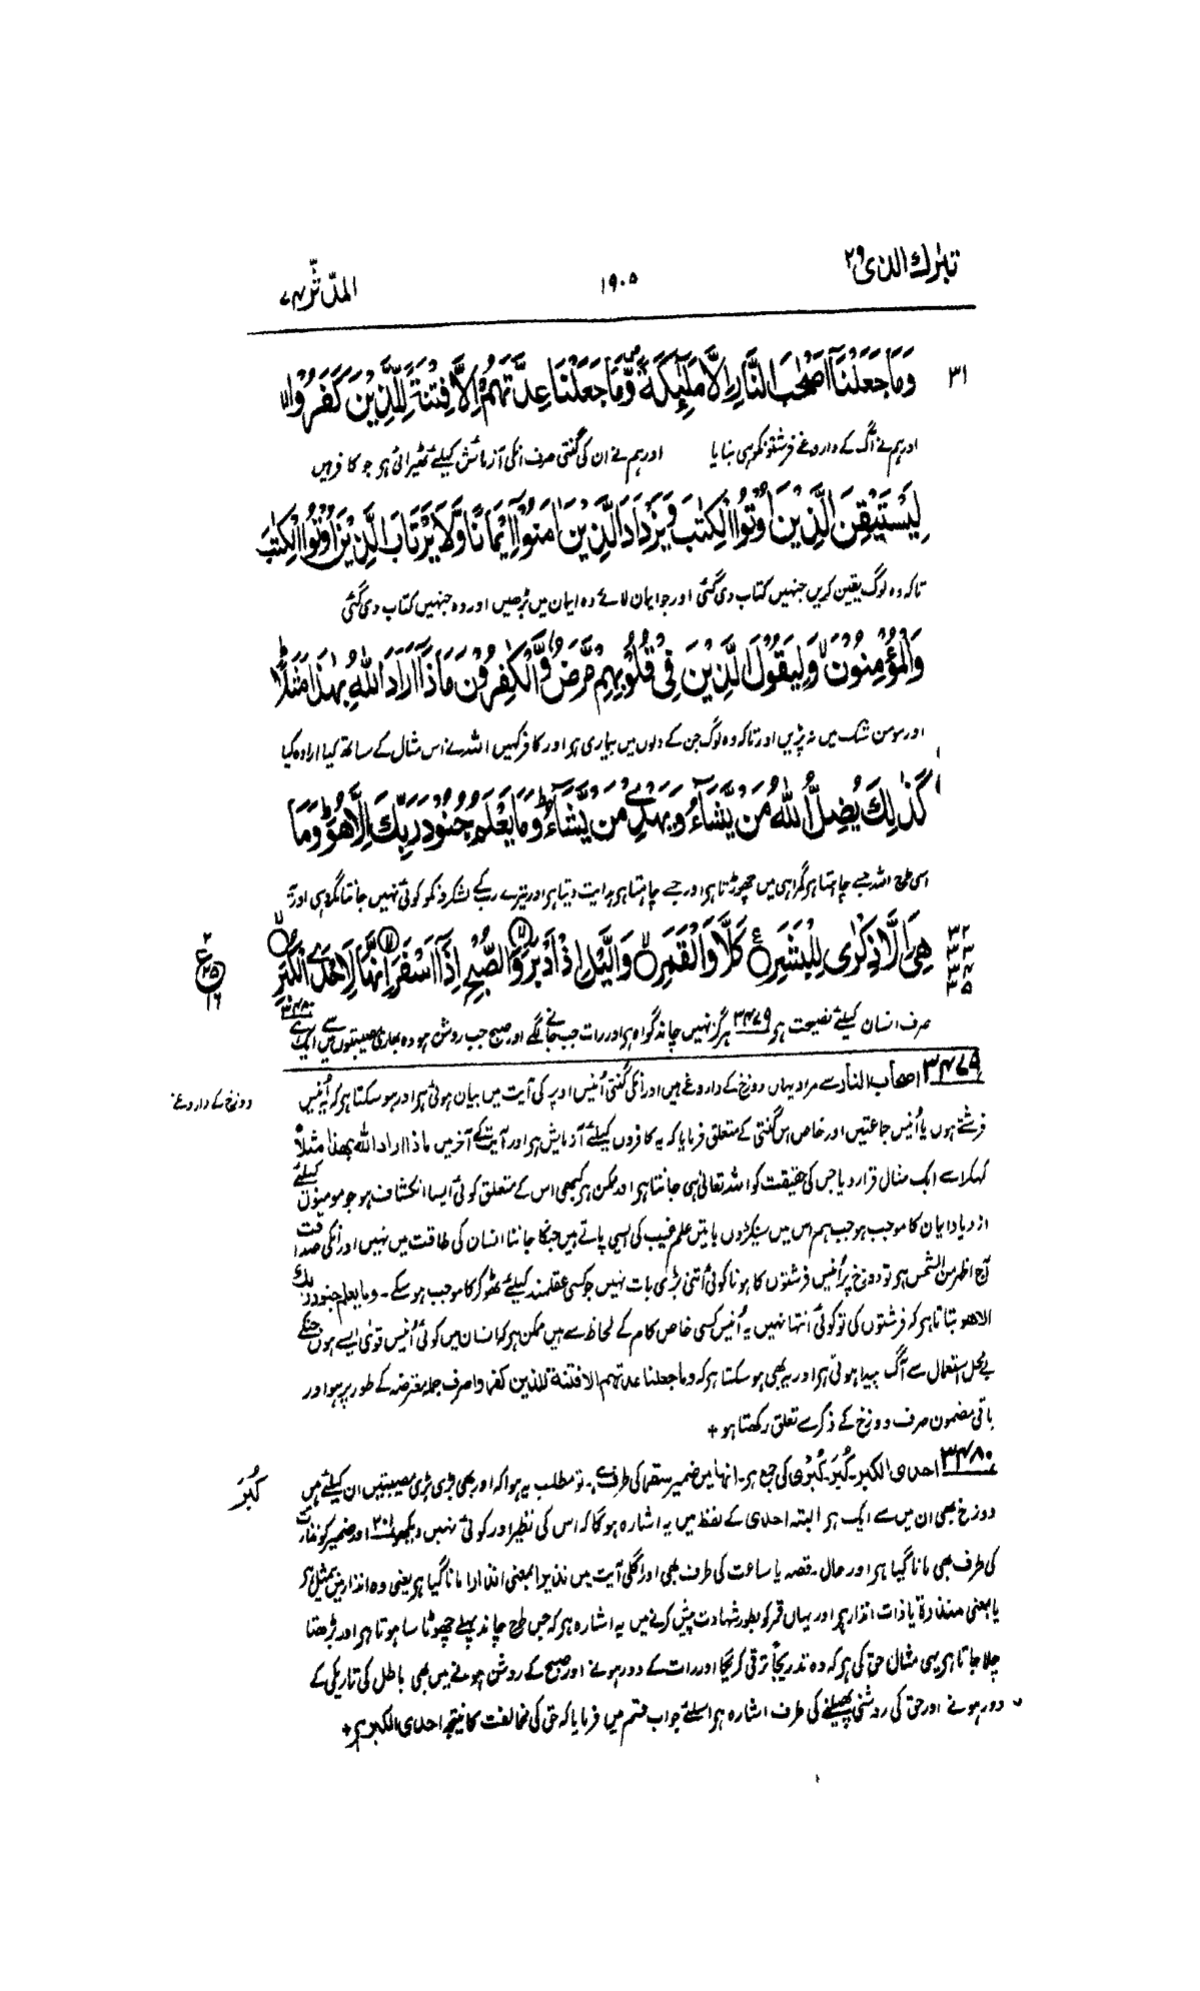 تبٰرك الذی ٢٩
١٩٠٥
المدّثّر ٧٤
٣١
وَمَا جَعَلْنَآ اَصْحٰبَ النَّارِ اِلَّا مَلٰٓئِكَةً ۪ وَّمَا جَعَلْنَا عِدَّتَهُمْ اِلَّا فِتْنَةً لِّلَّذِيْنَ كَفَرُوْا ۙ
اور ہم نے آگ کے داروغے فرشتونکو ہی بنایا اور ہم نے ان کی گنتی صرف انکی آزمائش کیلئے ٹھیرائی ہو جو کافر ہیں
لِيَسْتَيْقِنَ الَّذِيْنَ اُوْتُوا الْكِتٰبَ وَيَزْدَادَ الَّذِيْنَ اٰمَنُوْٓا اِيْمَانًا وَّلَا يَرْتَابَ الَّذِيْنَ اُوْتُوا الْكِتٰبَ
تاکہ وہ لوگ یقین کریں جنہیں کتاب دی گئی اور جو ایمان لائے وہ ایمان میں بڑھیں اور وہ جنہیں کتاب دی گئی
وَالْمُؤْمِنُوْنَ ۙ وَلِيَقُوْلَ الَّذِيْنَ فِيْ قُلُوْبِهِمْ مَّرَضٌ وَّالْكٰفِرُوْنَ مَاذَآ اَرَادَ اللّٰهُ بِهٰذَا مَثَلًا ؕ
اور مومن شک میں نہ پڑیں اور تاکہ وہ لوگ جن کے دلوں میں بیماری ہو اور کافر کہیں اللہ نے اس مثال کے ساتھ کیا ارادہ کیا
كَذٰلِكَ يُضِلُّ اللّٰهُ مَنْ يَّشَآءُ وَيَهْدِيْ مَنْ يَّشَآءُ ؕ وَمَا يَعْلَمُ جُنُوْدَ رَبِّكَ اِلَّا هُوَ ؕ وَمَا
اسی طرح اللہ جسے چاہتا ہو گمراہی میں چھوڑتا ہو اور جسے چاہتا ہو ہدایت دیتا ہو اور تیرے رب کے لشکرونکو کوئی نہیں جانتا مگر وہی اور یہ
٣٢
٣٣
٣٤
٣٥
هِيَ اِلَّا ذِكْرٰى لِلْبَشَرِ ۟ كَلَّا وَالْقَمَرِ ۙ وَالَّيْلِ اِذْ اَدْبَرَ ۙ وَالصُّبْحِ اِذَآ اَسْفَرَ ۙ اِنَّهَا لَاِحْدَى الْكُبَرِ ۙ
٢
ع
٢٥
١٦
صرف انسان کیلئے نصیحت ہو ٣٤٧٩ ہرگز نہیں چاند گواہ ہو اور رات جب جانے لگے اور صبح جب روشن ہو وہ بھاری مصیبتوں میں سے ایک ہے ٣٤٨٠
٣٤٧٩ اصحاب النار سے مراد یہاں دوزخ کے داروغے ہیں اور انکی گنتی اُنیس اوپر کی آیت میں بیان ہوئی ہو اور ہو سکتا ہو کہ اُنیس
دوزخ کے داروغے
فرشتے ہوں یا اُنیس جماعتیں اور خاص اس گنتی کے متعلق فرمایا کہ یہ کافروں کیلئے آزمایش ہو اور آیت کے آخر میں ماذا اراد اللہ بھذا مثلاً
کہکر اسے ایک مثال قرار دیا جس کی حقیقت کو اللہ تعالیٰ ہی جانتا ہو اور ممکن ہو کبھی اس کے متعلق کوئی ایسا انکشاف ہو جو مومنوں کیلئے
ازدیاد ایمان کا موجب ہو جب ہم اس میں سینکڑوں باتیں علم غیب کی ایسی پاتے ہیں جنکا جاننا انسان کی طاقت میں نہیں اور انکی صداقت
آج اظہر من الشمس ہو تو دوزخ پر اُنیس فرشتوں کا ہونا کوئی اتنی بڑی بات نہیں جو کسی عقلمند کیلئے ٹھوکر کا موجب ہو سکے ۔ وما یعلم جنود ربك
الا ھو بتاتا ہو کہ فرشتوں کی تو کوئی انتہا نہیں یہ اُنیس کسی خاص کام کے لحاظ سے ہیں ممکن ہو کہ انسان میں کوئی اُنیس قوٰی ایسے ہوں جنکے
بے محل استعمال سے آگ پیدا ہوتی ہو اور یہ بھی ہو سکتا ہو کہ وما جعلنا عدتھم الا فتنة للذین کفروا صرف جملہ معترضہ کے طور پر ہو اور
باقی مضمون صرف دوزخ کے ذکر سے تعلق رکھتا ہو +
٣٤٨٠ احدی الکبر ۔ کُبَر ۔ کُبْرٰی کی جمع ہو ۔ انھا میں ضمیر سقر کی طرف ہے ۔ تو مطلب یہ ہوا کہ اور بھی بڑی بڑی مصیبتیں ان کیلئے ہیں
کُبَر
دوزخ بھی ان میں سے ایک ہو البتہ احدی کے لفظ میں یہ اشارہ ہوگا کہ اس کی نظیر اور کوئی نہیں دیکھو اور ضمیر کو
کی طرف بھی مانا گیا ہو اور حال ۔ قصہ یا ساعت کی طرف بھی اور اگلی آیت میں نذیرا بمعنی انذارا مانا گیا ہو یعنی وہ انذار میں بیمثل ہو
یا بمعنی منذرة یا ذات انذار ہو اور یہاں قمر کو بطور شہادت پیش کرنے میں یہ اشارہ ہو کہ جس طرح چاند پہلے چھوٹا سا ہوتا ہو اور بڑھتا
چلا جاتا ہو یہی مثال حق کی ہو کہ وہ تدریجاً ترقی کریگا اور رات کے دور ہونے اور صبح کے روشن ہونے میں بھی باطل کی تاریکی کے
دور ہونے اور حق کی روشنی پھیلنے کی طرف اشارہ ہو اسلئے جواب قسم میں فرمایا کہ حق کی مخالفت کا نتیجہ احدی الکبر ہو +